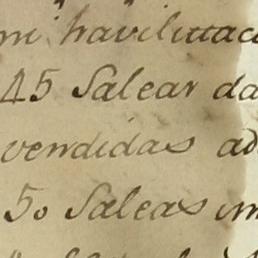 mi havilitaca
45 Salear da
vendidas ad
50 Saleas im